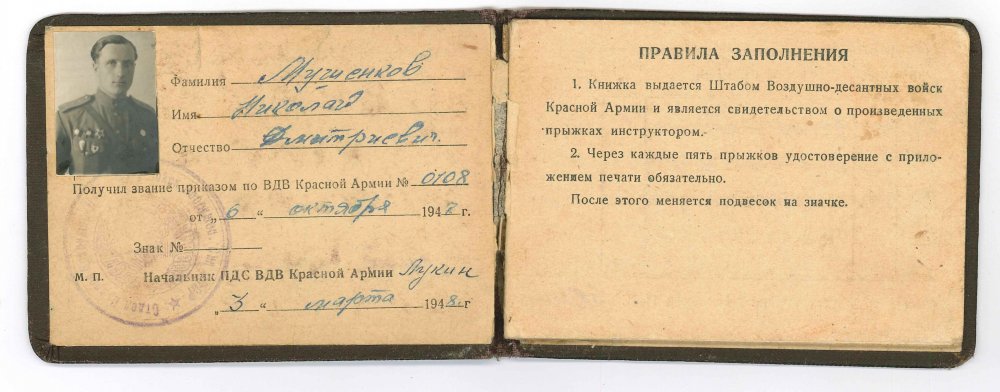 Фамилия Мученков
Имя Николай
Отчество Дмитриевич.
Получил звание приказом по ВДВ Красной Армии № 0108
от „ 6 “ октября 1947 г.
Знак №
М. П. Начальник ПДС ВДВ Красной Армии Лукин
„ 3 “ марта 1948 г
ПРАВИЛА ЗАПОЛНЕНИЯ
1. Книжка выдается Штабом Воздушно-десантных войск
Красной Армии и является свидетельством о произведенных
прыжках инструктором.
2. Через каждые пять прыжков удостоверение с прило-
жением печати обязательно.
После этого меняется подвесок на значке.